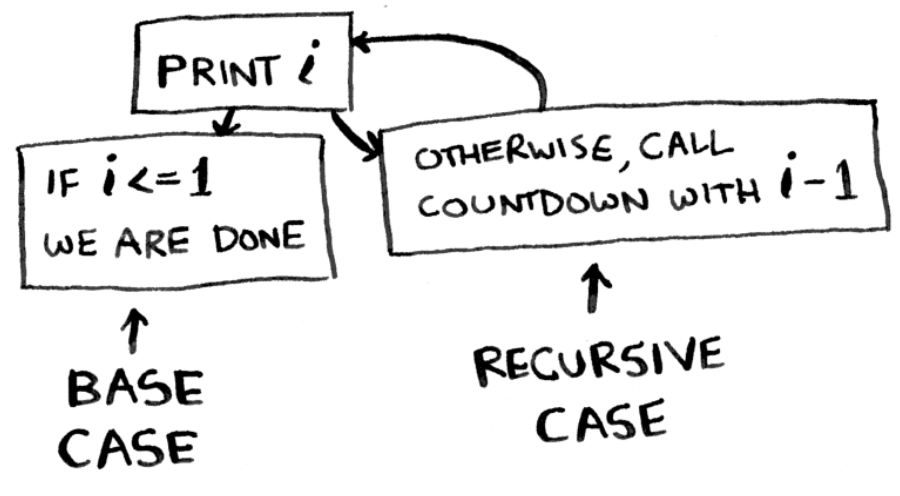 PRINT i
IF i<=1
WE ARE DONE
OTHERWISE, CALL
COUNTDOWN WITH i-1
BASE
CASE
RECURSIVE
CASE